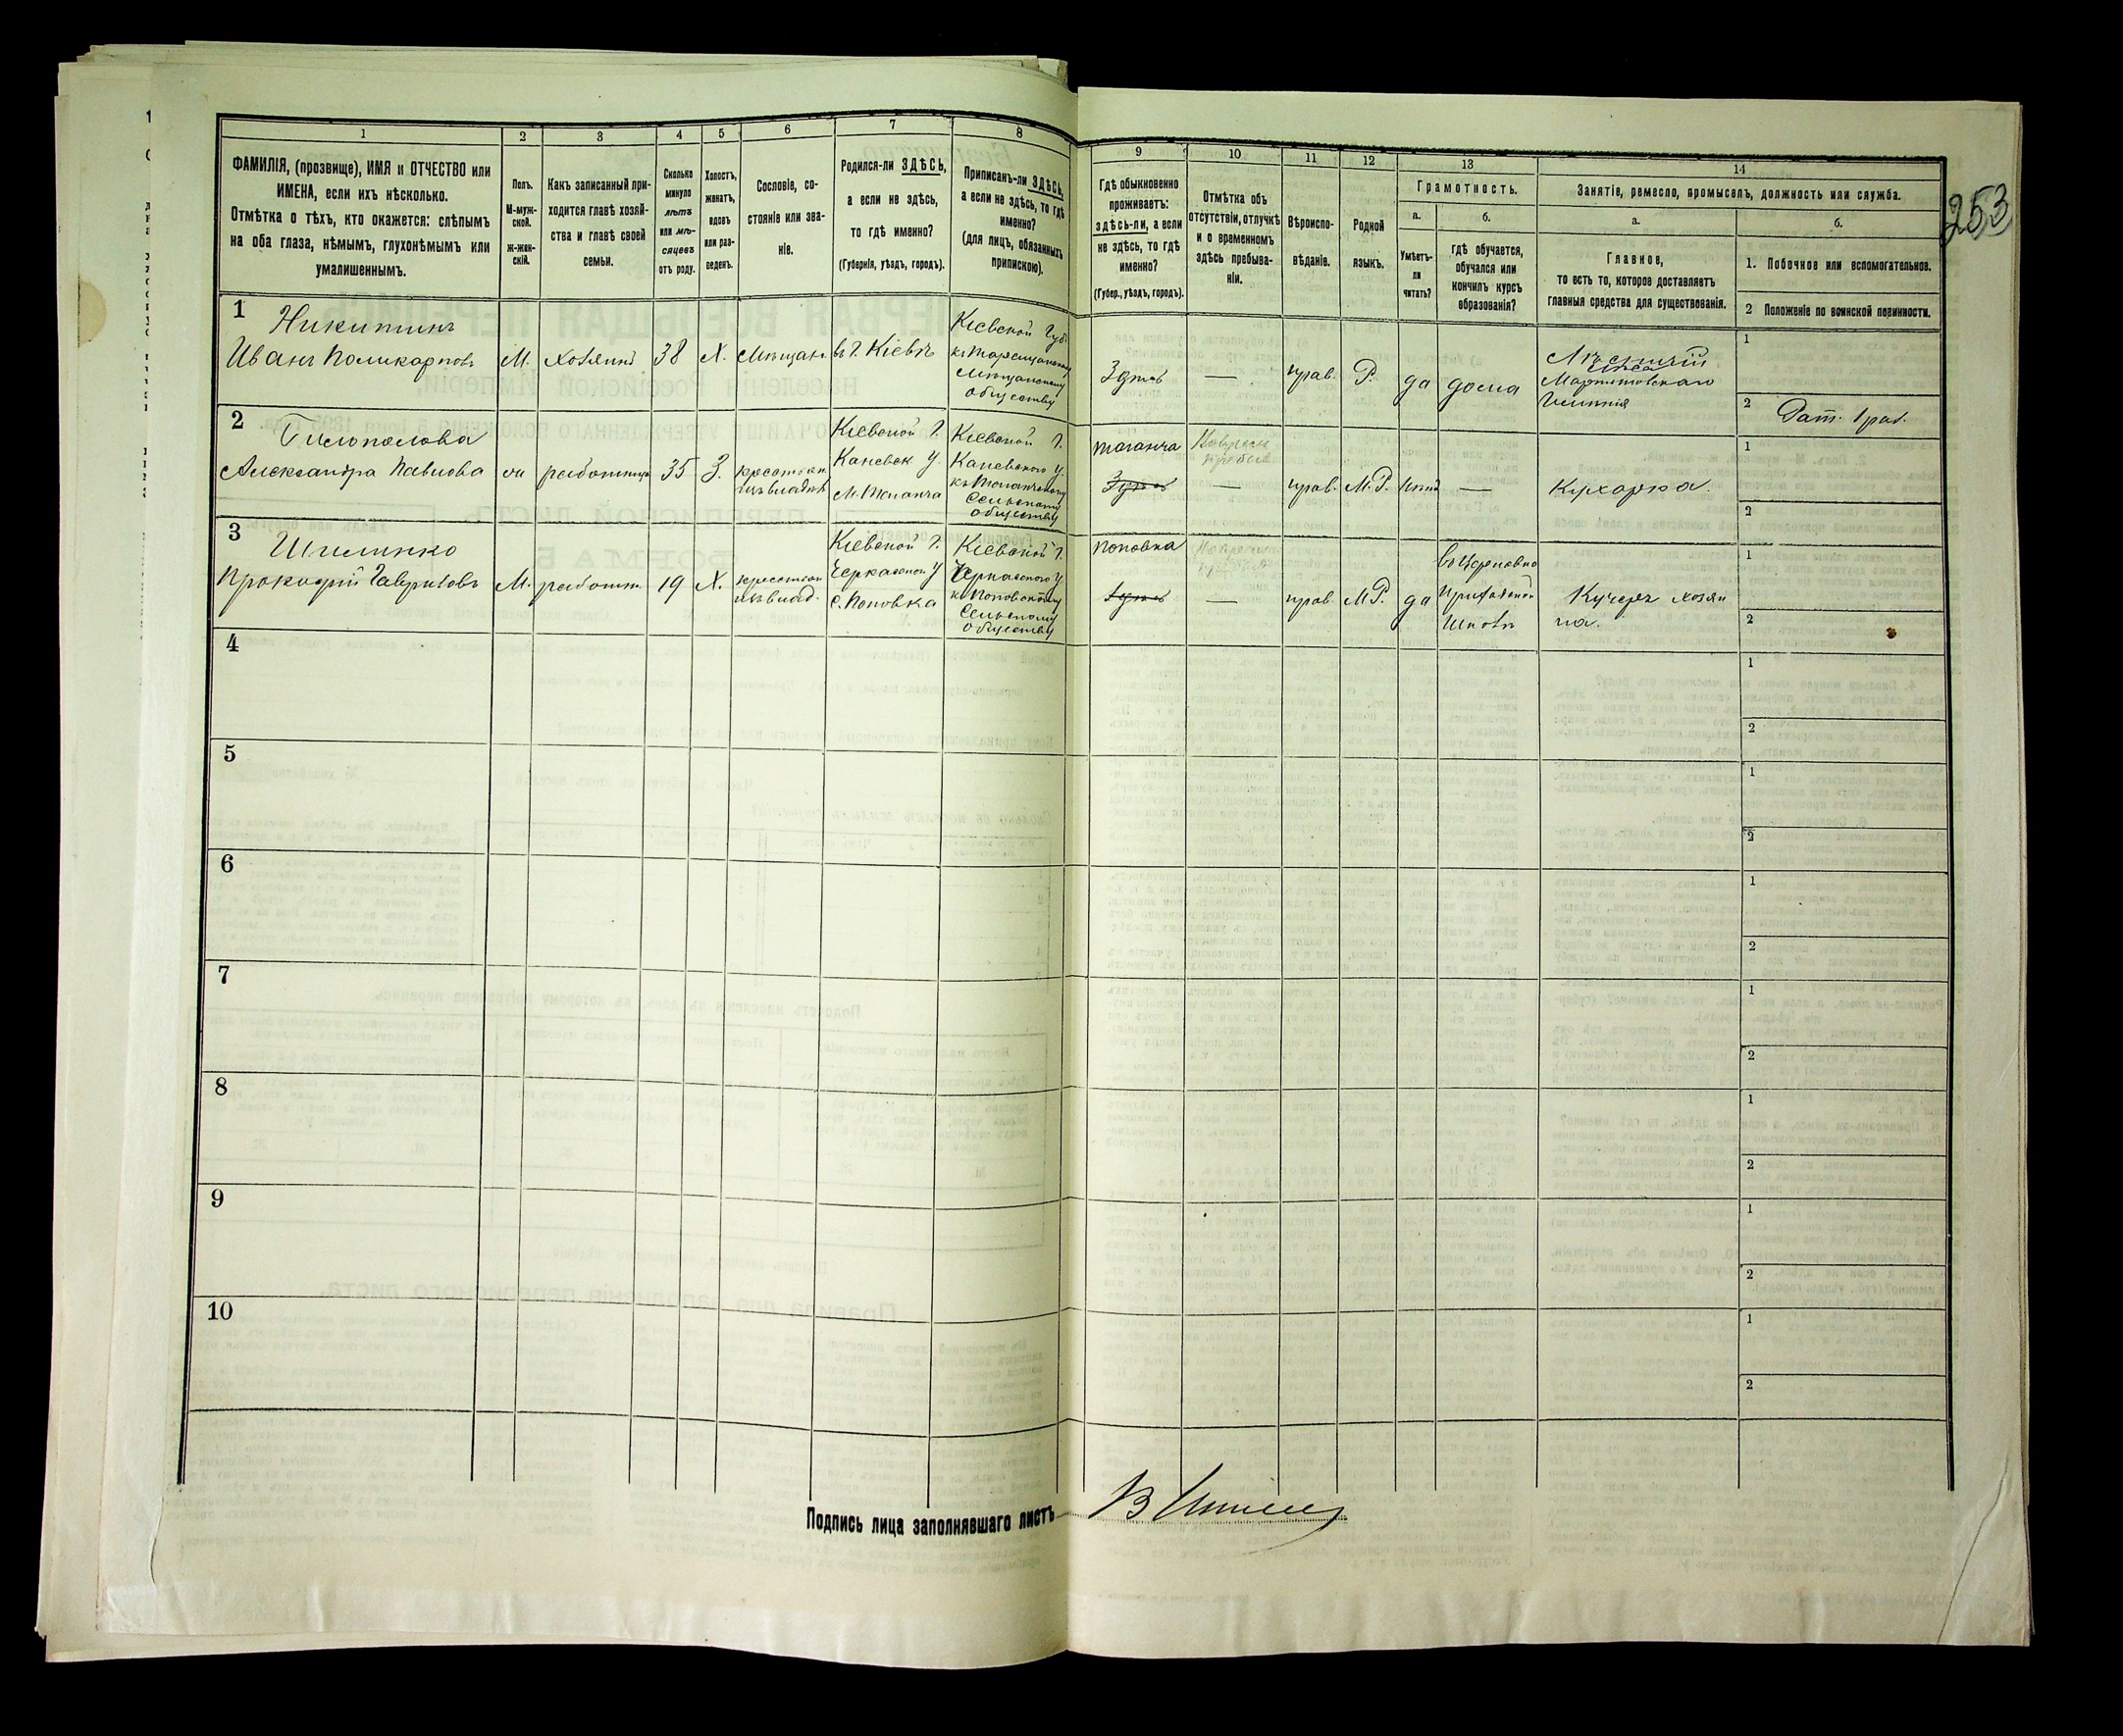 253
1 2 3 4 5 6 7 8 9 10 11 12 13 14
ФАМИЛІЯ, (прозвище), ИМЯ и ОТЧЕСТВО или
ИМЕНА, если ихъ нѣсколько.
Отмѣтка о тѣхъ, кто окажется: слѣпымъ
на оба глаза, нѣмымъ, глухонѣмымъ или
умалишеннымъ.
Полъ.
М-муж-
ской.
ж-жен-
скій.
Какъ записанный при-
ходится главѣ хозяй-
ства и главѣ своей
семьи.
Сколько
минуло
лѣтъ
или мѣ-
сяцевъ
отъ роду.
Холостъ,
женатъ,
вдовъ
или раз-
веденъ.
Сословіе, со-
стояніе или зва-
ніе.
Родился-ли ЗДѢСЬ,
а если не здѣсь,
то гдѣ именно?
(Губернія, уѣздъ, городъ).
Приписанъ-ли ЗДѢСЬ,
а если не здѣсь, то гдѣ
именно?
(для лицъ, обязанныхъ
припискою).
Гдѣ обыкновенно
проживаетъ:
здѣсь-ли, а если
не здѣсь, то гдѣ
именно?
(Губер., уѣздъ, городъ).
Отмѣтка объ
отсутствіи, отлучкѣ
и о временномъ
здѣсь пребыва-
ніи.
Вѣроиспо-
вѣданіе.
Родной
языкъ.
Грамотность.
а.
Умѣетъ-
ли
читать?
б.
гдѣ обучается,
обучался или
кончилъ курсъ
образованія?
Занятіе, ремесло, промыселъ, должность или служба.
а.
Главное,
то есть то, которое доставляетъ
главныя средства для существованія.
б.
1. Побочное или вспомогательное.
2 Положеніе по воинской повинности.
1
Никитинъ
Иванъ Поликарповъ
М.
хозяинъ
38
Х.
Мѣщан.
въ г. Кіевѣ
Кіевской Губ.
къ Таращанскому
Мѣщанскому
обществу
Здѣсь
—
прав.
Р.
да
дома
Лѣсничій
Имѣнія
1
2
2
Александра Павлова
работница
35
З.
крестьян.
Кіевской г.
Каневск у.
м. Таганча
Кіевской г.
Каневского у.
къ Таганчскому
Сельскому
обществу
Таганча
Здѣсь
—
прав.
М.Р.
—
Кухарка.
1
2
3
Прокофій Гавриловъ
М.
работн.
19
Х.
крестьян
Кіевской г.
Черкасской у
с. Поповка
Кіевской г.
Черкасского у.
къ Поповскому
Сельскому
обществу
Поповка
Здѣсь
—
прав.
М.Р.
да
въ Церковно
Приходской
Школѣ
Кучеръ хозяи
на.
1
2
4
1
2
5
1
2
6
1
2
7
1
2
8
1
2
9
1
2
10
1
2
Подпись лица заполнявшаго листъ